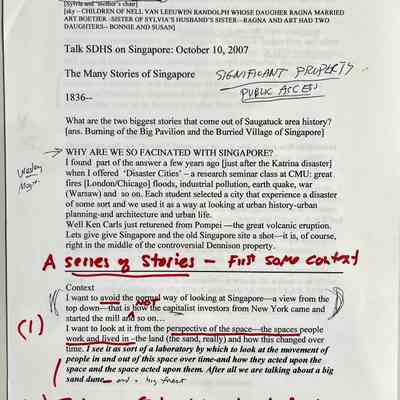 [Sylvia and "mother's chair]
[sky – CHILDREN OF NELL VAN LEEUWEN RANDOLPH WHOSE DAUGHER RAGNA MARRIED
ART BOETIER -SISTER OF SYLVIA'S HUSBAND'S SISTER--RAGNA AND ART HAD TWO
DAUGHTERS-- BONNIE AND SUSAN]
Talk SDHS on Singapore: October 10, 2007
The Many Stories of Singapore
SIGNIFICANT PROPERTY
PUBLIC ACCESS
1836--
What are the two biggest stories that come out of Saugatuck area history?
[ans. Burning of the Big Pavilion and the Burried Village of Singapore]
WHY ARE WE SO FACINATED WITH SINGAPORE?
I found part of the answer a few years ago [just after the Katrina disaster]
when I offered 'Disaster Cities' – a research seminar class at CMU: great
fires [London/Chicago] floods, industrial pollution, earth quake, war
(Warsaw) and so on. Each student selected a city that experience a disaster
of some sort and we used it as a way at looking at urban history-urban
planning-and architecture and urban life.
Well Ken Carls just returned from Pompei —the great volcanic eruption.
Lets give give Singapore and the old Singapore site a shot—it is, of course,
right in the middle of the controversial Dennison property.
A series of Stories – First some context
Context
I want to avoid the normal way of looking at Singapore—a view from the
NOT
top down—that is how the capitalist investors from New York came and
started the mill and so on...
(1)
I want to look at it from the perspective of the space—the spaces people
work and lived in –the land (the sand, really) and how this changed over
time. I see it as sort of a laboratory by which to look at the movement of
people in and out of this space over time-and how they acted upon the
space and the space acted upon them. After all we are talking about a big
sand dune – and a big forest